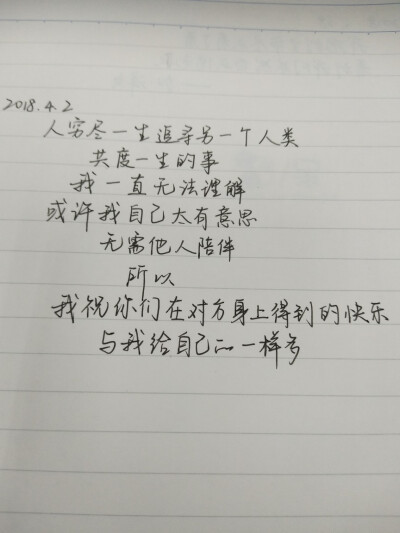 2018.4.2
人穷尽一生追寻另一个人类
共度一生的事
我一直无法理解
或许我自己太有意思
无需他人陪伴
所以
我祝你们在对方身上得到的快乐
与我给自己的一样多